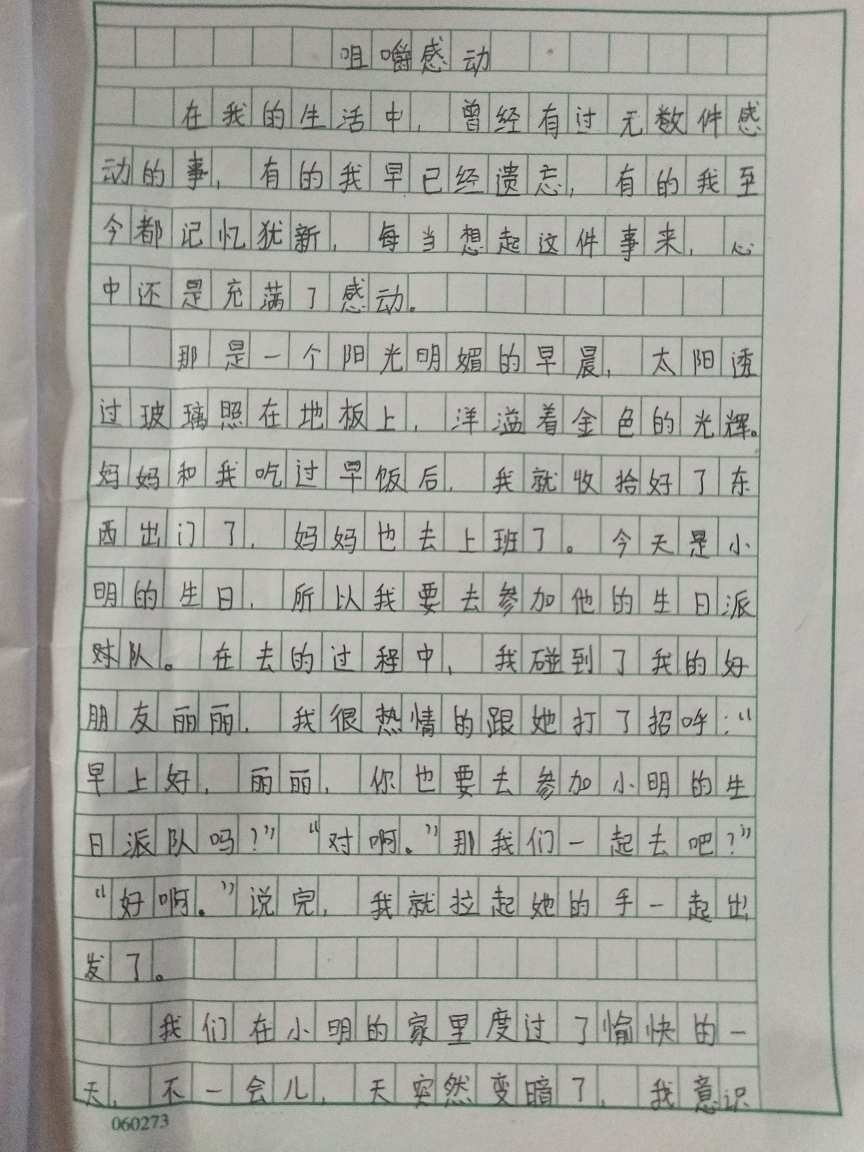 咀嚼感动
在我的生活中，曾经有过无数件感
动的事，有的我早已经遗忘，有的我至
今都记忆犹新，每当想起这件事来，心
中还是充满了感动。
那是一个阳光明媚的早晨，太阳透
过玻璃照在地板上，洋溢着金色的光辉。
妈妈和我吃过早饭后，我就收拾好了东
西出门了，妈妈也去上班了。今天是小
明的生日，所以我要去参加他的生日派
对队。在去的过程中，我碰到了我的好
朋友丽丽，我很热情的跟她打了招呼：“
早上好，丽丽，你也要去参加小明的生
日派队吗？”“对啊。”那我们一起去吧？”
“好啊。”说完，我就拉起她的手一起出
发了。
我们在小明的家里度过了愉快的一
天，不一会儿，天突然变暗了，我意识
060273